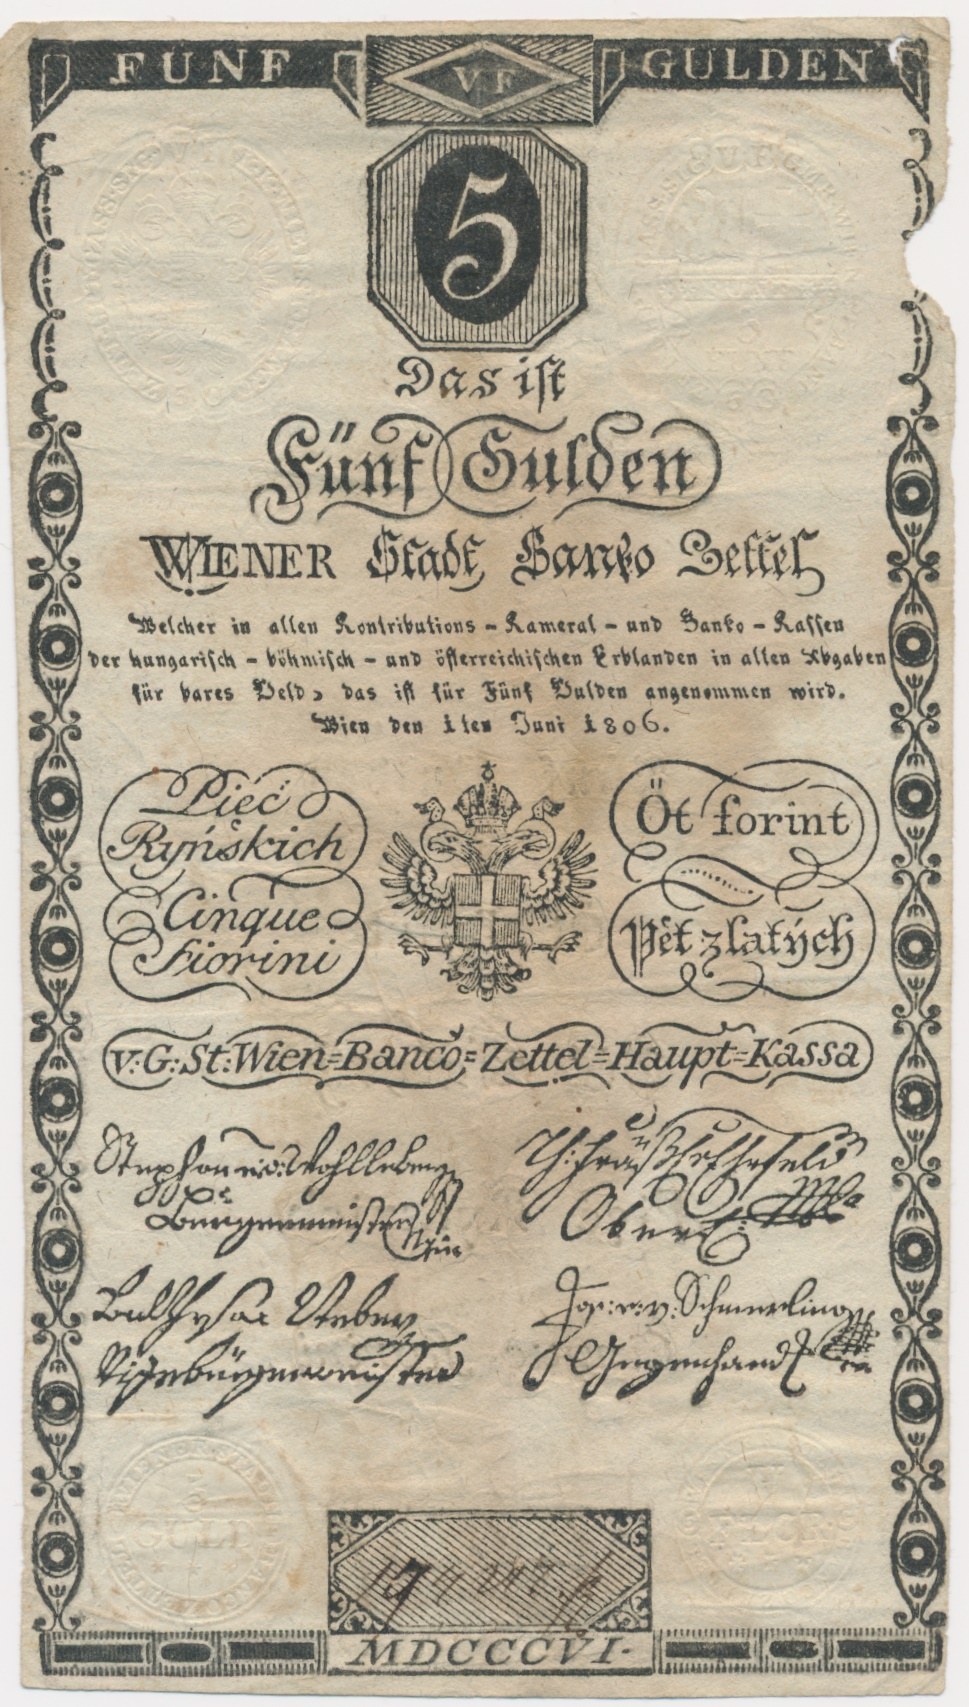 FÜNF V F GULDEN
5
Das ist
Fünf Gulden
WIENER Stadt Banko Zettel
Welcher in allen Kontributions - Kameral - und Banko - Kassen
der hungarisch - böhmisch - und österreichischen Erblanden in allen Abgaben
für bares Geld, das ist für Fünf Gulden angenommen wird.
Wien den 1ten Juni 1806.
Pięć
Ryńskich
Cinque
Fiorini
Öt forint
Pět zlatých
V: G: St: Wien=Banco=Zettel=Haupt=Kassa
Stephan
Burgermeister
Ober
Vizebürgermeister
Jos: Schmerling
Gegenhand
WIENER STADT
GULD
FLOR
MDCCCVI.